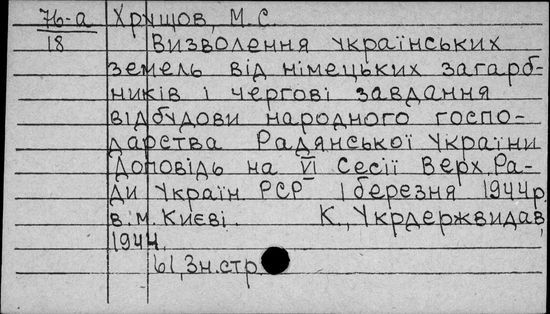 76-а Хрущов, М. С.
18 Визволення українських
земель від німецьких загарб-
ників і чергові завдання
відбудови народного госпо-
дарства Радянської України
Доповідь на VI Сесії Верх. Ра-
ди Україн РСР 1 березня 1944р.
в. м. Києві. К., Укрдержвидав,
1944.
61, 3н. стр